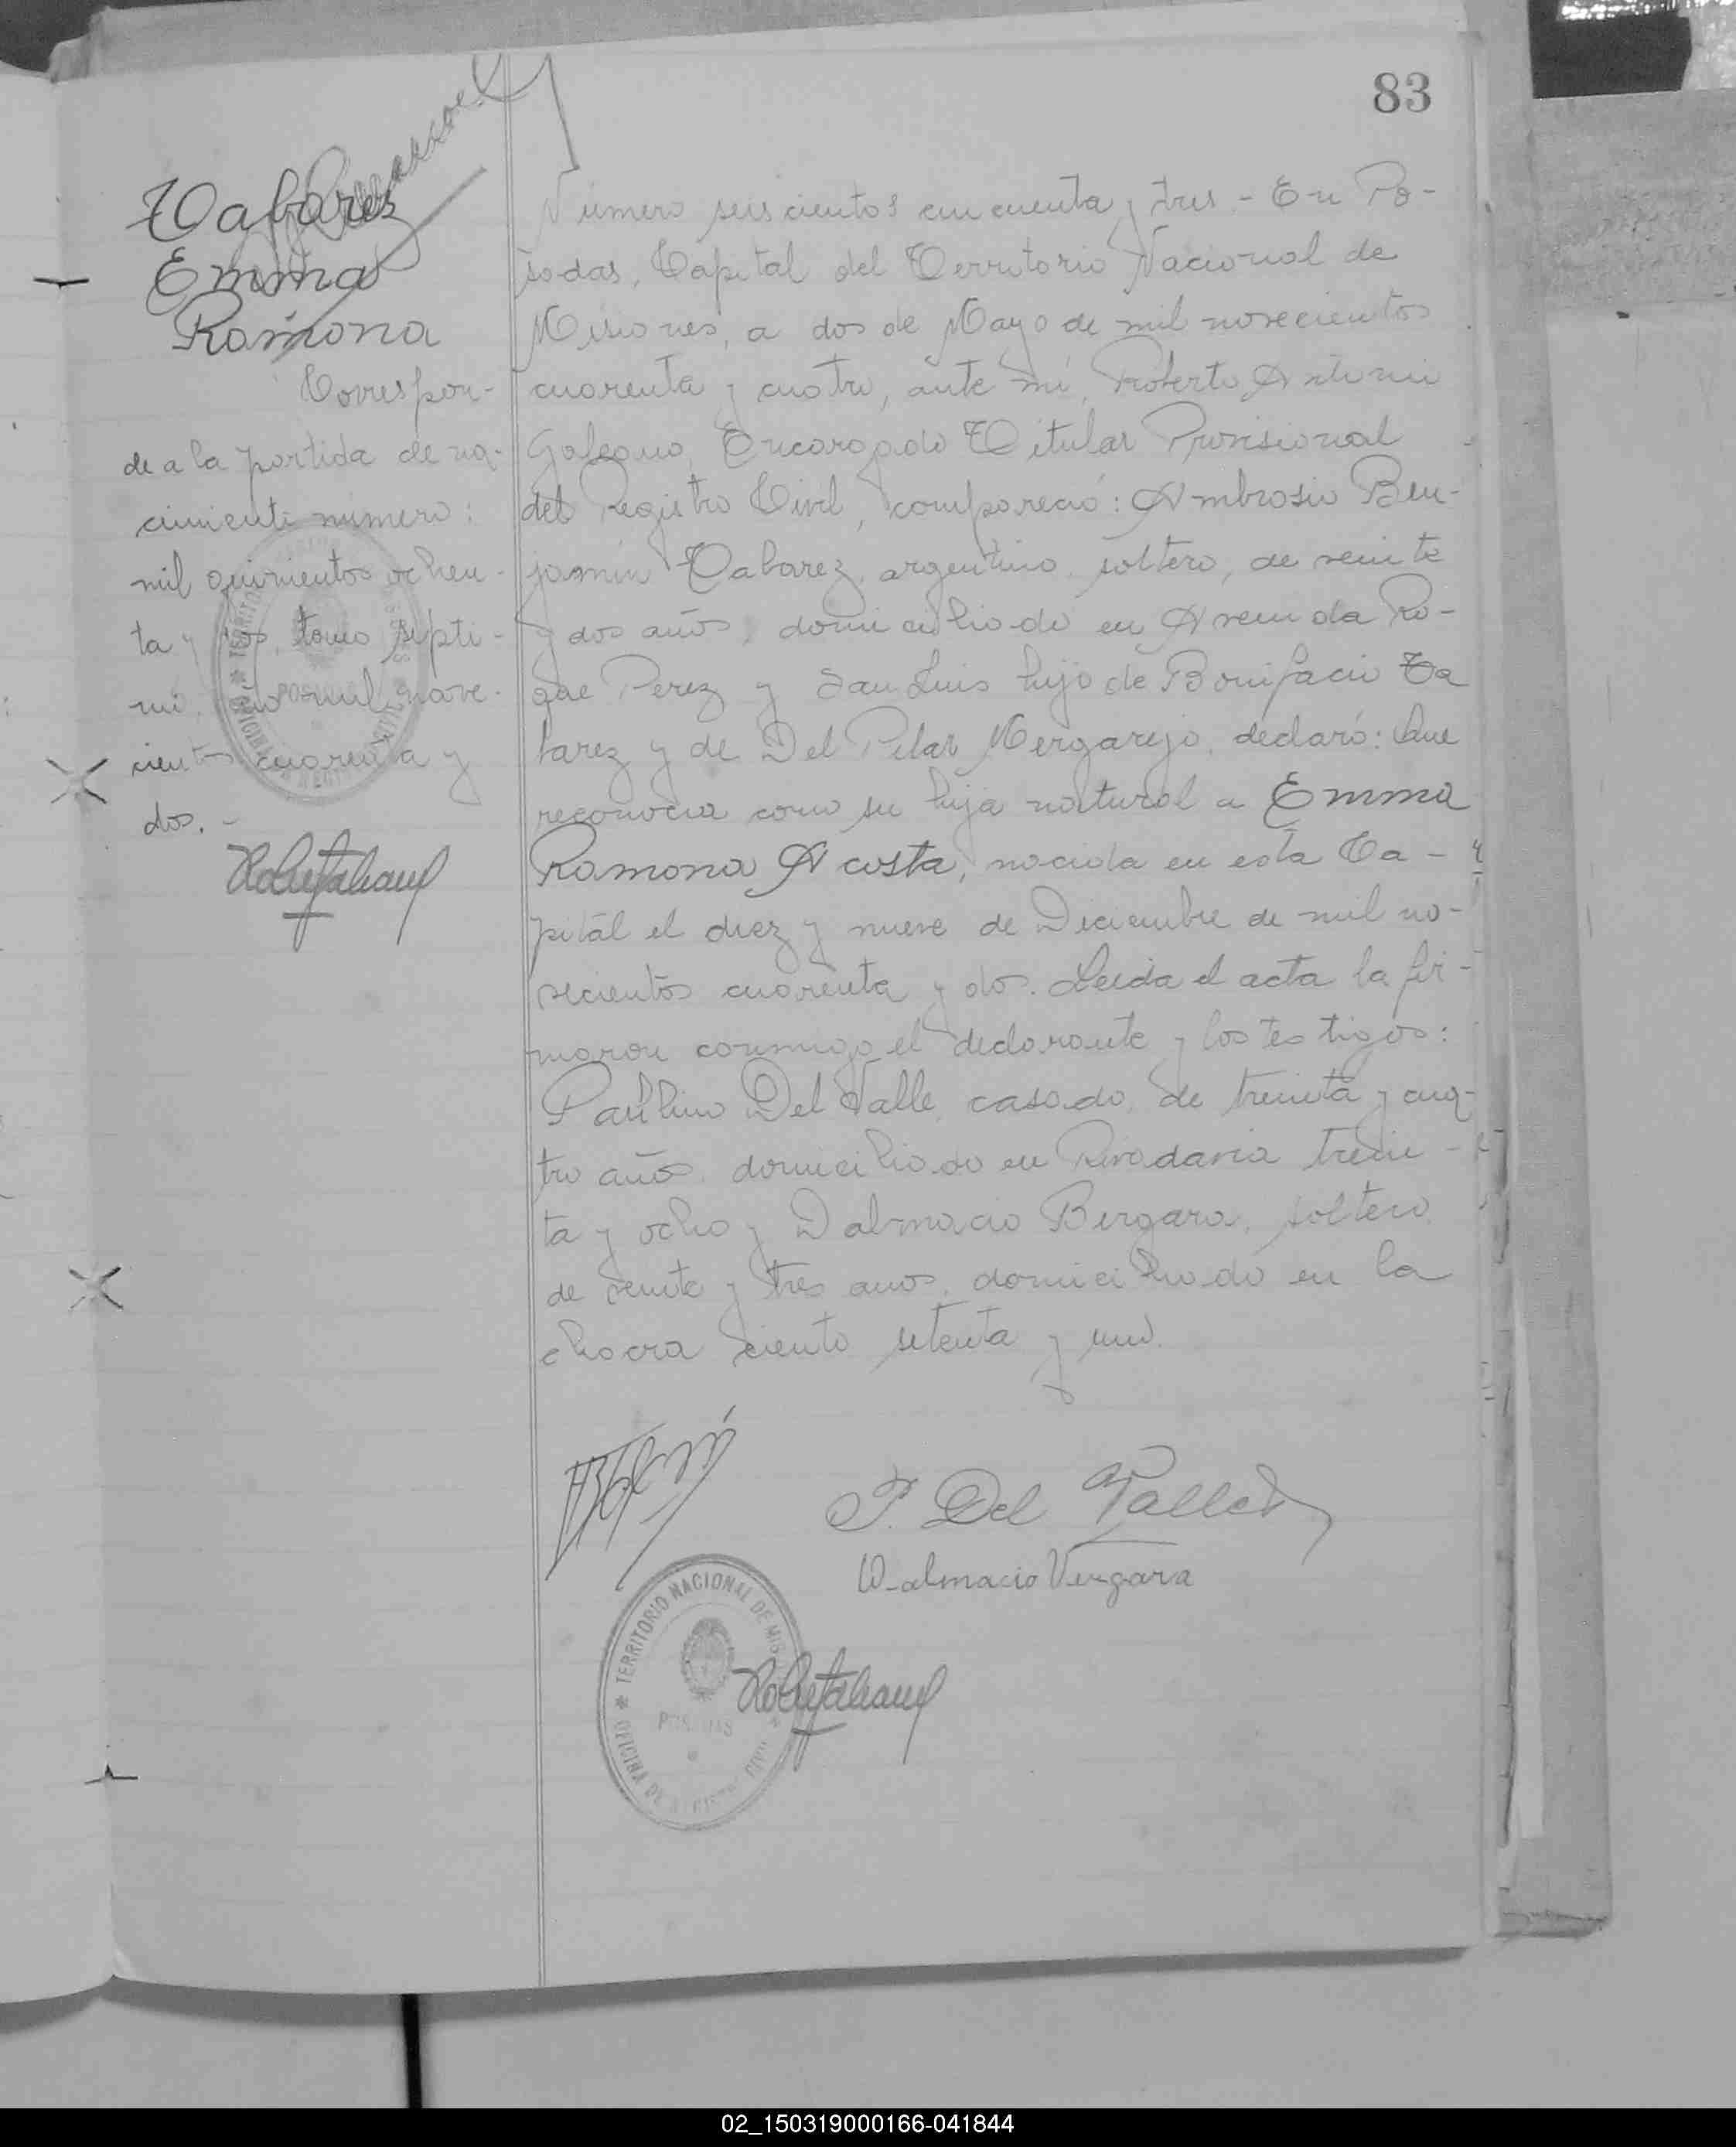 83
Tabarez
Emma
Ramona
Correspon-
de a la partida de na-
cimiento número:
mil quinientos ochen-
ta y dos, tomo septi-
mo, año mil nove-
cientos cuarenta y
dos.-
Número seiscientos cincuenta y tres.- En Po-
sadas, Capital del Territorio Nacional de
Misiones, a dos de Mayo de mil novecientos
cuarenta y cuatro, ante mí, Roberto Antonio
Galeano, Encargado Titular Provisional
del Registro Civil, compareció: Ambrosio Ben-
jamín Tabarez, argentino, soltero, de veinte
y dos años, domiciliado en Avenida Ro-
que Perez y San Luis hijo de Bonifacio Ta
barez y de Del Pilar Mergarejo, declaró: Que
reconocia como su hija natural a Emma
Ramona Acosta, nacida en esta Ca-
pital el diez y nueve de Diciembre de mil no-
vecientos cuarenta y dos. Leida el acta la fir-
maron conmigo el declarante y los testigos:
Paulino Del Valle, casado, de treinta y cua-
tro años, domiciliado en Rivadavia trein-
ta y ocho y Dalmacio Bergara, soltero,
de veinte y tres años, domiciliado en la
chacra ciento setenta y uno.
P. Del Valle
Dalmacio Vergara
TERRITORIO NACIONAL DE MIS
POSADAS
OFICINA DE REGISTRO CIVIL
02_150319000166-041844